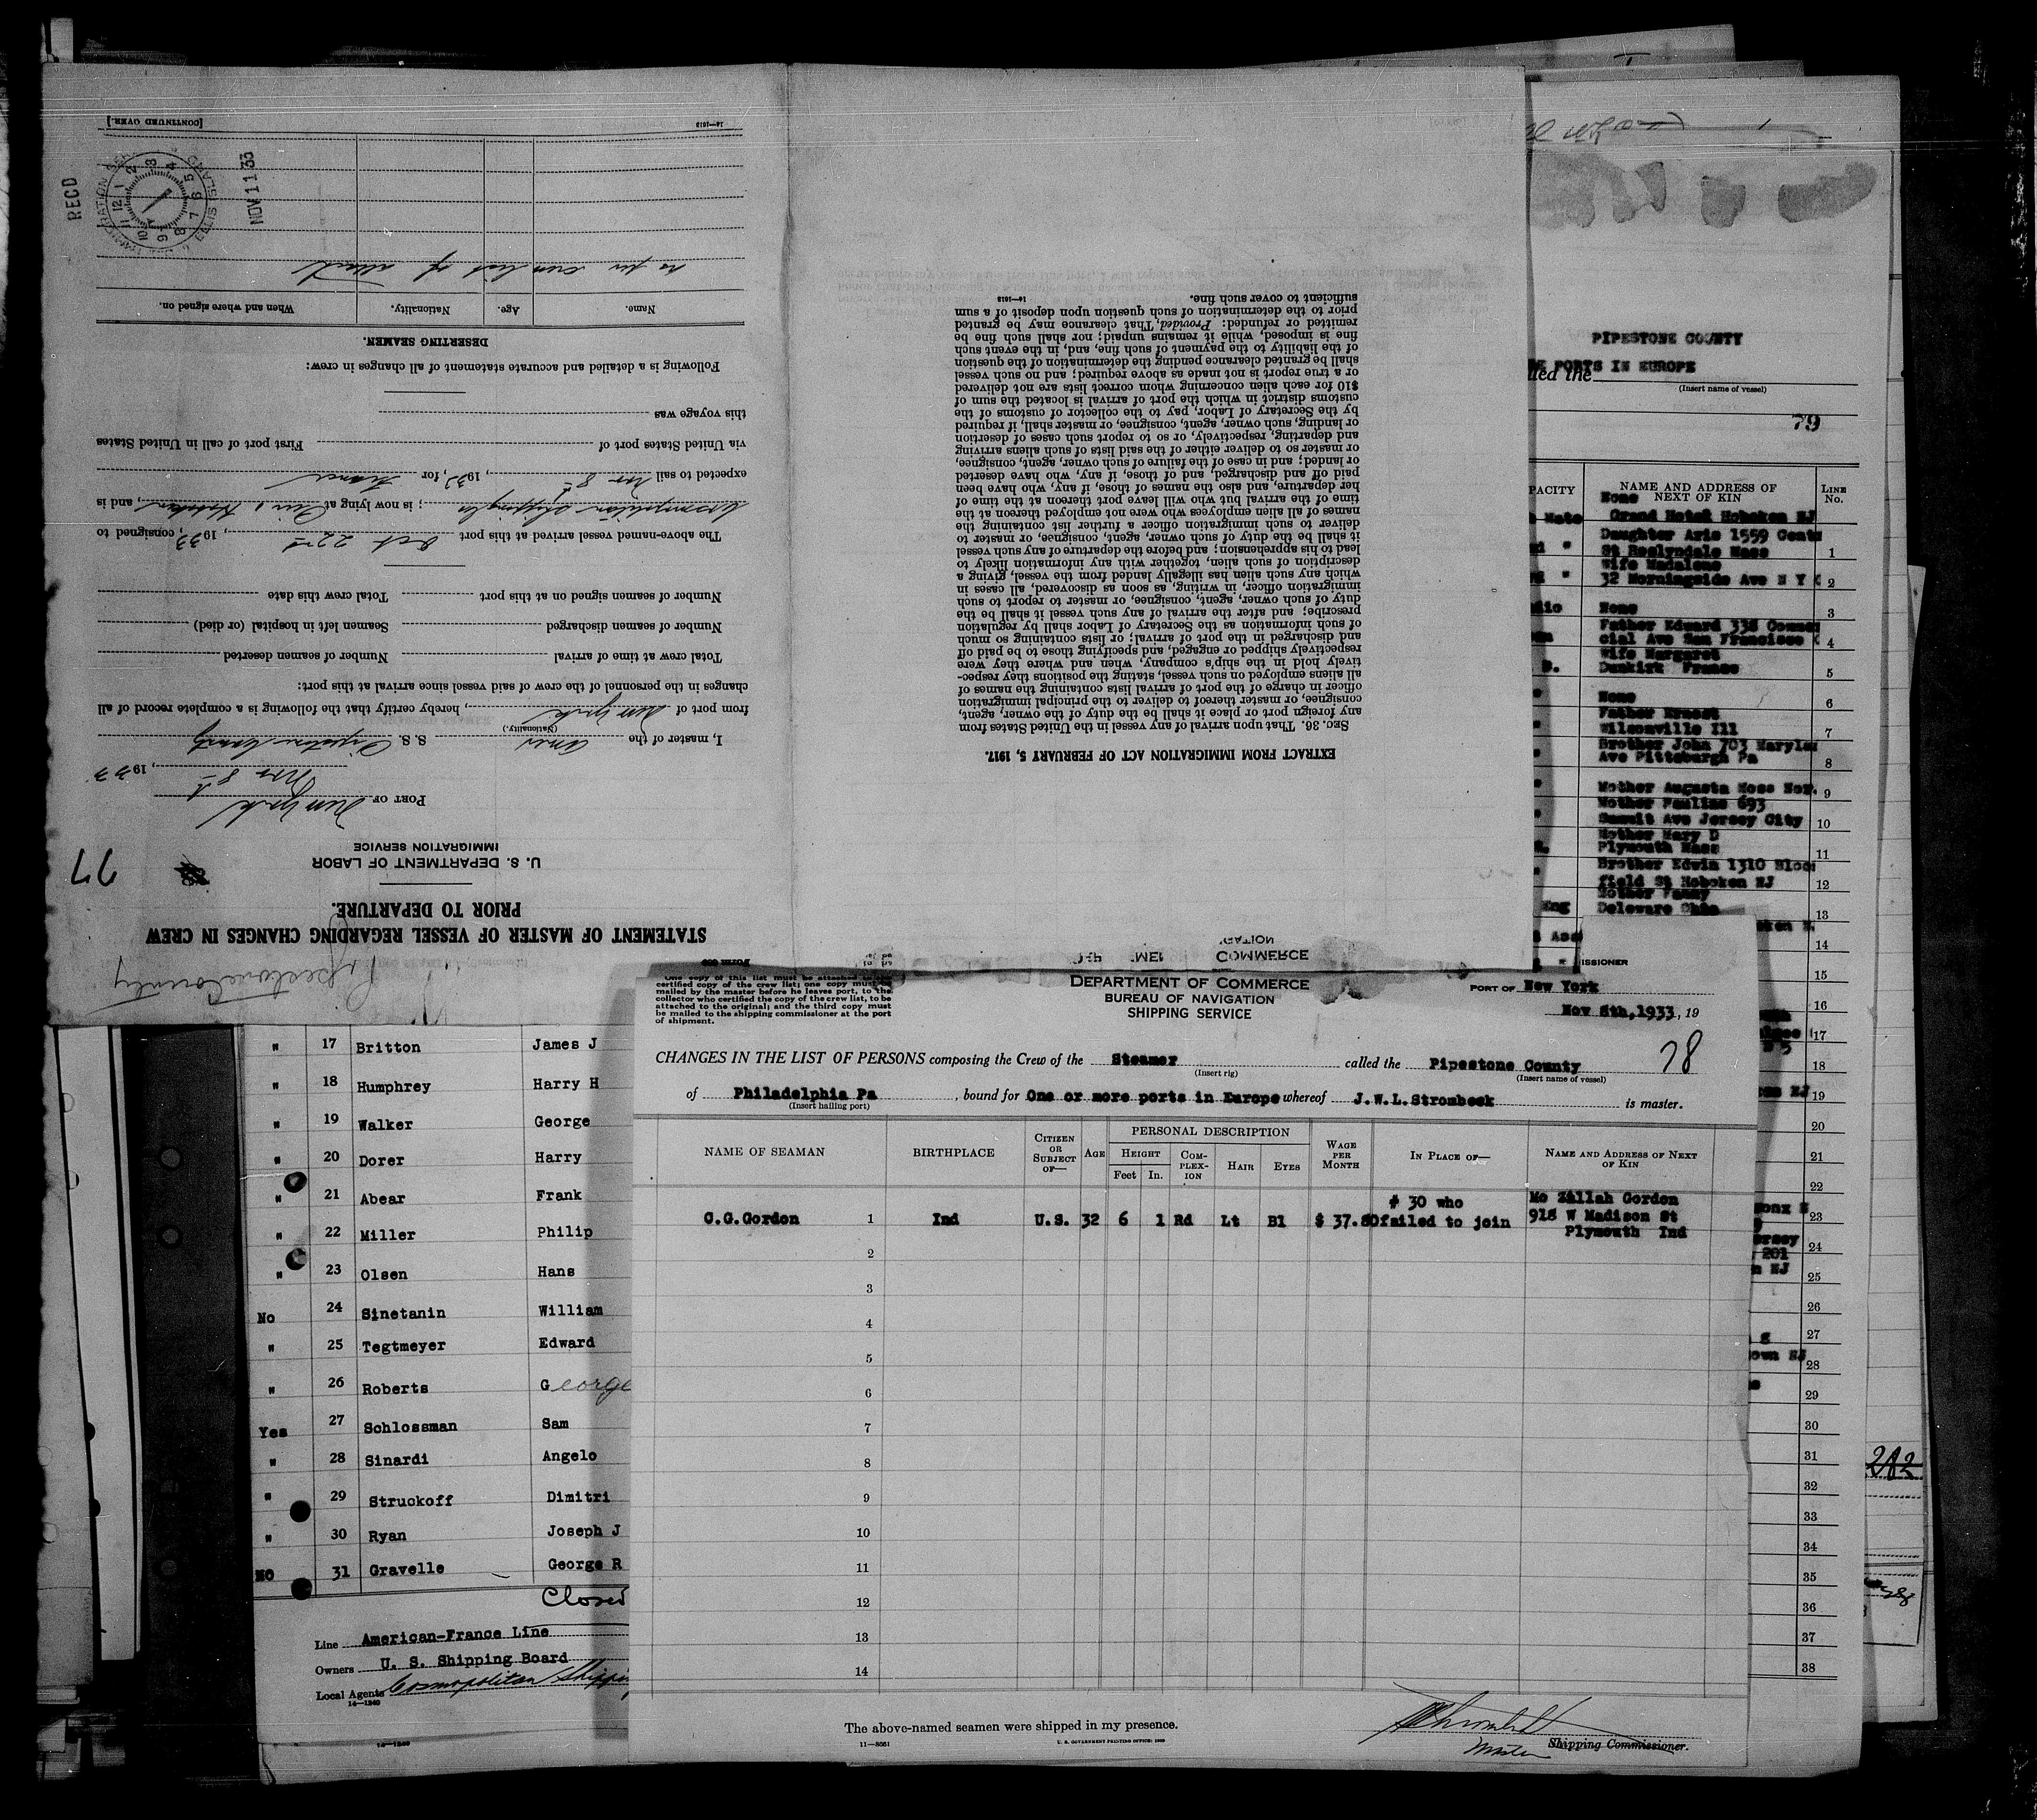 STATEMENT OF MASTER OF VESSEL REGARDING CHANGES IN CREW
PRIOR TO DEPARTURE.
U. S. DEPARTMENT OF LABOR
IMMIGRATION SERVICE
77
PORT OF New York
Nov 8th, 1933
I, master of the Amer S. S. Pipestone County
(Nationality.)
from port of New York, hereby certify that the following is a complete record of all
changes in the personnel of the crew of said vessel since arrival at this port:
Total crew at time of arrival Number of seamen deserted
Number of seamen discharged Seamen left in hospital (or died)
Number of seamen signed on at this port Total crew this date
The above-named vessel arrived at this port Oct 22nd, 1933, consigned to
Cosmopolitan Shipping Co; is now lying at Pier 1 Hoboken, and is
expected to sail Nov 8th, 1933, for France
via United States port of First port of call in United States
this voyage was
Following is a detailed and accurate statement of all changes in crew:
DESERTING SEAMEN.
Name. Age. Nationality. When and where signed on.
as per crew list of attached
14—1613 [CONTINUED OVER.]
RECD
NOV 11 33
Pipestone County
EXTRACT FROM IMMIGRATION ACT OF FEBRUARY 5, 1917.
SEC. 36. That upon arrival of any vessel in the United States from
any foreign port or place it shall be the duty of the owner, agent,
consignee, or master thereof to deliver to the principal immigration
officer in charge of the port of arrival lists containing the names of
all aliens employed on such vessel, stating the positions they respec-
tively hold in the ship's company, when and where they were
respectively shipped or engaged, and specifying those to be paid off
and discharged in the port of arrival; or lists containing so much
of such information as the Secretary of Labor shall by regulation
prescribe; and after the arrival of any such vessel it shall be the
duty of such owner, agent, consignee, or master to report to such
immigration officer, in writing, as soon as discovered, all cases in
which any such alien has illegally landed from the vessel, giving a
description of such alien, together with any information likely to
lead to his apprehension; and before the departure of any such vessel
it shall be the duty of such owner, agent, consignee, or master to
deliver to such immigration officer a further list containing the
names of all alien employees who were not employed thereon at the
time of the arrival but who will leave port thereon at the time of
her departure, and also the names of those, if any, who have been
paid off and discharged, and of those, if any, who have deserted
or landed; and in case of the failure of such owner, agent, consignee,
or master so to deliver either of the said lists of such aliens arriving
and departing, respectively, or so to report such cases of desertion
or landing, such owner, agent, consignee, or master shall, if required
by the Secretary of Labor, pay to the collector of customs of the
customs district in which the port of arrival is located the sum of
$10 for each alien concerning whom correct lists are not delivered
or a true report is not made as above required; and no such vessel
shall be granted clearance pending the determination of the question
of the liability to the payment of such fine, and, in the event such
fine is imposed, while it remains unpaid; nor shall such fine be
remitted or refunded: Provided, That clearance may be granted
prior to the determination of such question upon deposit of a sum
sufficient to cover such fine.
14—1613
PIPESTONE COUNTY
PORTS IN EUROPE
called the
(Insert name of vessel)
79
NAME AND ADDRESS OF
NEXT OF KIN
LINE
No.
None
Grand Hotel Hoboken NJ
Daughter Azie 1559 Cent
St Roslyndale Mass 1
Wife Madalene
32 Morningside Ave N Y C 2
None 3
Father Edward 338 Commer
cial Ave San Francisco 4
Wife Margaret
Dunkirk France 5
None 6
Father Ernest
Wilsonville Ill 7
Brother John 703 Maryla
Ave Pittsburgh Pa 8
Mother Augusta Moss Nor. 9
Mother Pauline 693
Summit Ave Jersey City 10
Mother Mary D
Plymouth Mass 11
Brother Edwin 1310 Bloom
field St Hoboken NJ 12
Mother Fanny
Deleware Ohio 13
14
15
16
17
18
19
20
21
22
23
24
25
26
27
28
29
30
31
32
33
34
35
36
37
38
282
One copy of this list must be attached to the
certified copy of the crew list; one copy must be
mailed by the master before he leaves port, to the
collector who certified the copy of the crew list, to be
attached to the original; and the third copy must
be mailed to the shipping commissioner at the port
of shipment.
DEPARTMENT OF COMMERCE
BUREAU OF NAVIGATION
SHIPPING SERVICE
PORT OF New York
Nov 8th,1933, 19
78
CHANGES IN THE LIST OF PERSONS composing the Crew of the Steamer called the Pipestone County
(Insert rig) (Insert name of vessel)
of Philadelphia Pa, bound for One or more ports in Europe whereof J.W.L.Strombeck is master.
(Insert hailing port)
NAME OF SEAMAN BIRTHPLACE CITIZEN OR SUBJECT OF— AGE PERSONAL DESCRIPTION HEIGHT Feet In. COMPLEXION HAIR EYES WAGE PER MONTH IN PLACE OF— NAME AND ADDRESS OF NEXT OF KIN
C.G.Gordon 1 Ind U.S. 32 6 1 Rd Lt Bl $ 37.80 # 30 who failed to join Mo Zillah Gordon
918 W Madison St
Plymouth Ind
2
3
4
5
6
7
8
9
10
11
12
13
14
The above-named seamen were shipped in my presence.
11—8661
U. S. GOVERNMENT PRINTING OFFICE: 1933
Master
Shipping Commissioner.
" 17 Britton James J
" 18 Humphrey Harry H
" 19 Walker George
" 20 Dorer Harry
" 21 Abear Frank
" 22 Miller Philip
" 23 Olsen Hans
No 24 Sinetanin William
" 25 Tegtmeyer Edward
" 26 Roberts George
Yes 27 Schlossman Sam
" 28 Sinardi Angelo
" 29 Struckoff Dimitri
" 30 Ryan Joseph J
NO 31 Gravelle George R
Closed
Line American-France Line
Owners U. S. Shipping Board
Local Agents Cosmopolitan Shippin
14—1240